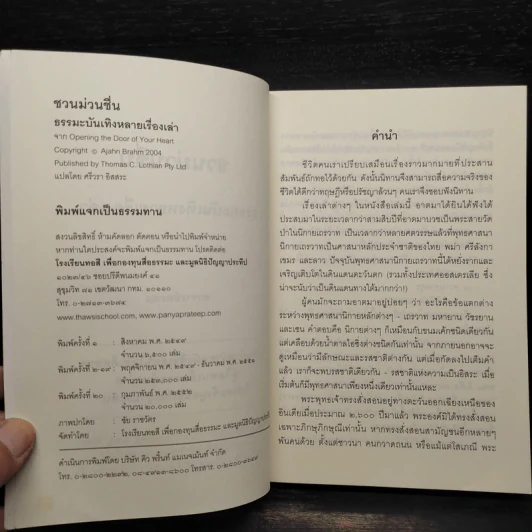 ชวนม่วนชื่น
ธรรมะบันเทิงหลายเรื่องเล่า
จาก Opening the Door of Your Heart
Copyright © Ajahn Brahm 2004
Published by Thomas C. Lothian Pty Ltd
แปลโดย ศรีวรา อิสสระ
พิมพ์แจกเป็นธรรมทาน
สงวนลิขสิทธิ์ ห้ามคัดลอก ตัดตอน หรือนำไปพิมพ์จำหน่าย
หากท่านใดประสงค์จะพิมพ์แจกเป็นธรรมทาน โปรดติดต่อ
โรงเรียนทอสี เพื่อกองทุนสื่อธรรมะ และมูลนิธิปัญญาประทีป
๑๐๒๓/๔๖ ซอยปรีดีพนมยงค์ ๔๑
สุขุมวิท ๗๑ เขตวัฒนา กทม. ๑๐๑๑๐
โทร. ๐-๒๗๑๓-๓๖๗๔
www.thawsischool.com, www.panyaprateep.com
พิมพ์ครั้งที่ ๑ : สิงหาคม พ.ศ. ๒๕๔๙
จำนวน ๖,๕๐๐ เล่ม
พิมพ์ครั้งที่ ๒-๑๙ : พฤศจิกายน พ.ศ. ๒๕๔๙ - ธันวาคม พ.ศ. ๒๕๕๑
พิมพ์ครั้งที่ ๒๐ : กุมภาพันธ์ พ.ศ. ๒๕๕๒
จำนวน ๒๐,๐๐๐ เล่ม
ภาพปกโดย : ชัย ราชวัตร
จัดทำโดย : โรงเรียนทอสี เพื่อกองทุนสื่อธรรมะ และมูลนิธิปัญญาประทีป
ดำเนินการพิมพ์โดย บริษัท คิว พริ้นท์ แมเนจเม้นท์ จำกัด
คำนำ
ชีวิตคนเราเปรียบเสมือนเรื่องราวมากมายที่ประสาน
สัมพันธ์ถักทอไว้ด้วยกัน ดังนั้นนิทานจึงสามารถสื่อความจริงของ
ชีวิตได้ดีกว่าทฤษฎีหรือปรัชญาล้วนๆ คนเราจึงชอบฟังนิทาน
เรื่องเล่าต่างๆ ในหนังสือเล่มนี้ อาตมาได้ยินได้ฟังได้
ประสบมาในระยะเวลากว่าสามสิบปีที่อาตมาบวชเป็นพระสายวัด
ป่าในนิกายเถรวาท เป็นเวลากว่าหลายศตวรรษแล้วที่พุทธศาสนา
นิกายเถรวาทเป็นศาสนาหลักประจำชาติของไทย พม่า ศรีลังกา
เขมร และลาว ปัจจุบันพุทธศาสนานิกายเถรวาทนี้ได้หยั่งรากและ
เจริญเติบโตในดินแดนตะวันตก (รวมทั้งประเทศออสเตรเลีย ซึ่ง
น่าจะนับว่าเป็นดินแดนทางใต้มากกว่า!)
ผู้คนมักจะถามอาตมาอยู่บ่อยๆ ว่า อะไรคือข้อแตกต่าง
ระหว่างพุทธศาสนานิกายหลักต่างๆ - เถรวาท มหายาน วัชรยาน
และเซน คำตอบคือ นิกายต่างๆ ก็เหมือนกับขนมเค้กชนิดเดียวกัน
แต่เคลือบด้วยน้ำตาลไอซิ่งต่างชนิดกันเท่านั้น จากภายนอกอาจจะ
ดูเหมือนว่ามีลักษณะและรสชาติต่างกัน แต่เมื่อกัดลงไปเต็มคำ
แล้ว เราก็จะพบรสชาติเดียวกัน - รสชาติแห่งความเป็นอิสระ เมื่อ
เริ่มต้นก็มีพุทธศาสนาเพียงหนึ่งเดียวเท่านั้นแหละ
พระพุทธเจ้าทรงสั่งสอนอยู่ทางตะวันออกเฉียงเหนือของ
อินเดียเมื่อประมาณ ๒,๖๐๐ ปีมาแล้ว พระองค์มิได้ทรงสั่งสอน
เฉพาะภิกษุภิกษุณีเท่านั้น หากทรงสั่งสอนสามัญชนอีกหลายๆ
พันคนด้วย ตั้งแต่ชาวนา คนกวาดถนน หรือแม้แต่โสเภณี พระ